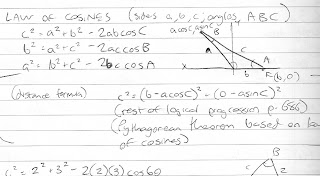 LAW OF COSINES (sides a, b, c; angles A B C)
c² = a² + b² - 2ab cos C
b² = a² + c² - 2ac cos B
a² = b² + c² - 2bc cos A
a cos C, a sin C
B
a
c
x
b
A
(b, 0)
(distance formula) c² = (b - a cos C)² - (0 - a sin C)²
(rest of logical progression p. 686)
(Pythagorean theorem based on law
of cosines)
B
c² = 2² + 3² - 2(2)(3) cos 60
c
2